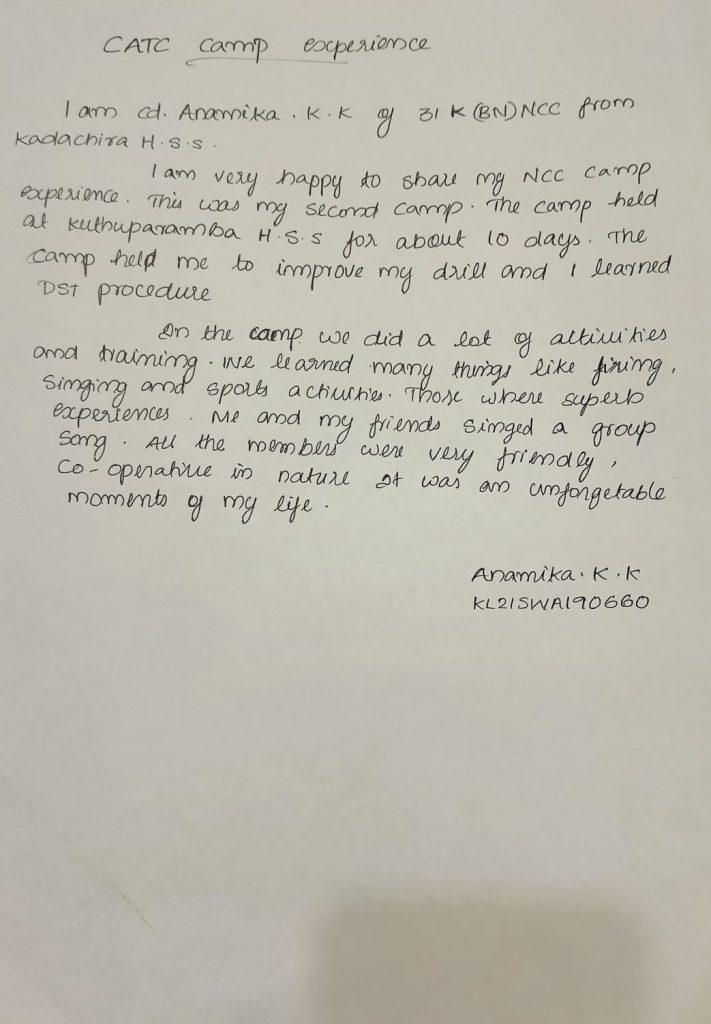 CATC camp experience
I am cd. Anamika . K . K of 31 K (BN) NCC from
Kadachira H . S . S .
I am very happy to share my NCC camp
experience . This was my second camp . The camp held
at Kuthuparamba H . S . S for about 10 days . The
camp held me to improve my drill and I learned
DST procedure
In the camp we did a lot of activities
and training . We learned many things like firing ,
Singing and sports activities . Those where superb
experiences . Me and my friends singed a group
song . All the members were very friendly ,
Co-operative in nature It was an unforgetable
moments of my life .
Anamika . K . K
KL21SWA190660